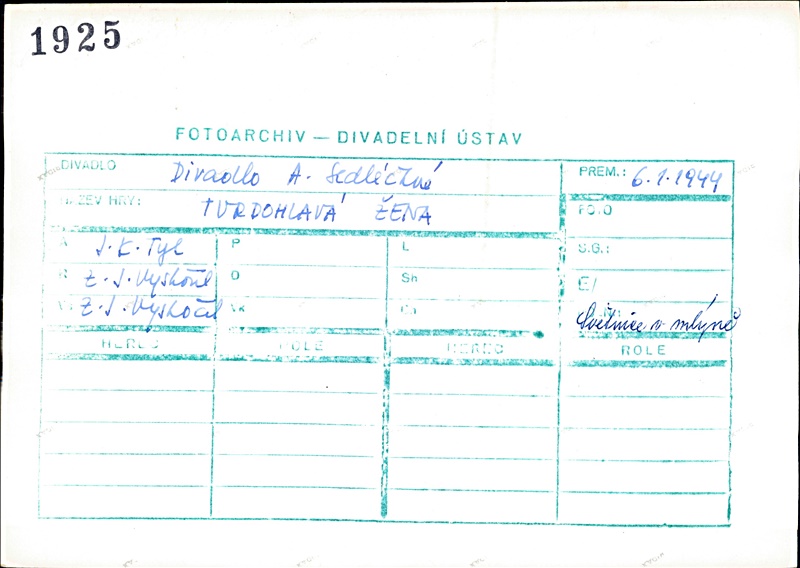 1925
FOTOARCHIV — DIVADELNÍ ÚSTAV
DIVADLO Divadlo A. Sedláčkové PREM.: 6.1.1944
NÁZEV HRY: TVRDOHLAVÁ ŽENA FOTO
A J. K. Tyl P L S.G.:
R Z. J. Vyskočil O Sh E/
V Z. J. Vyskočil
Světnice v mlýně
HEREC ROLE HEREC ROLE